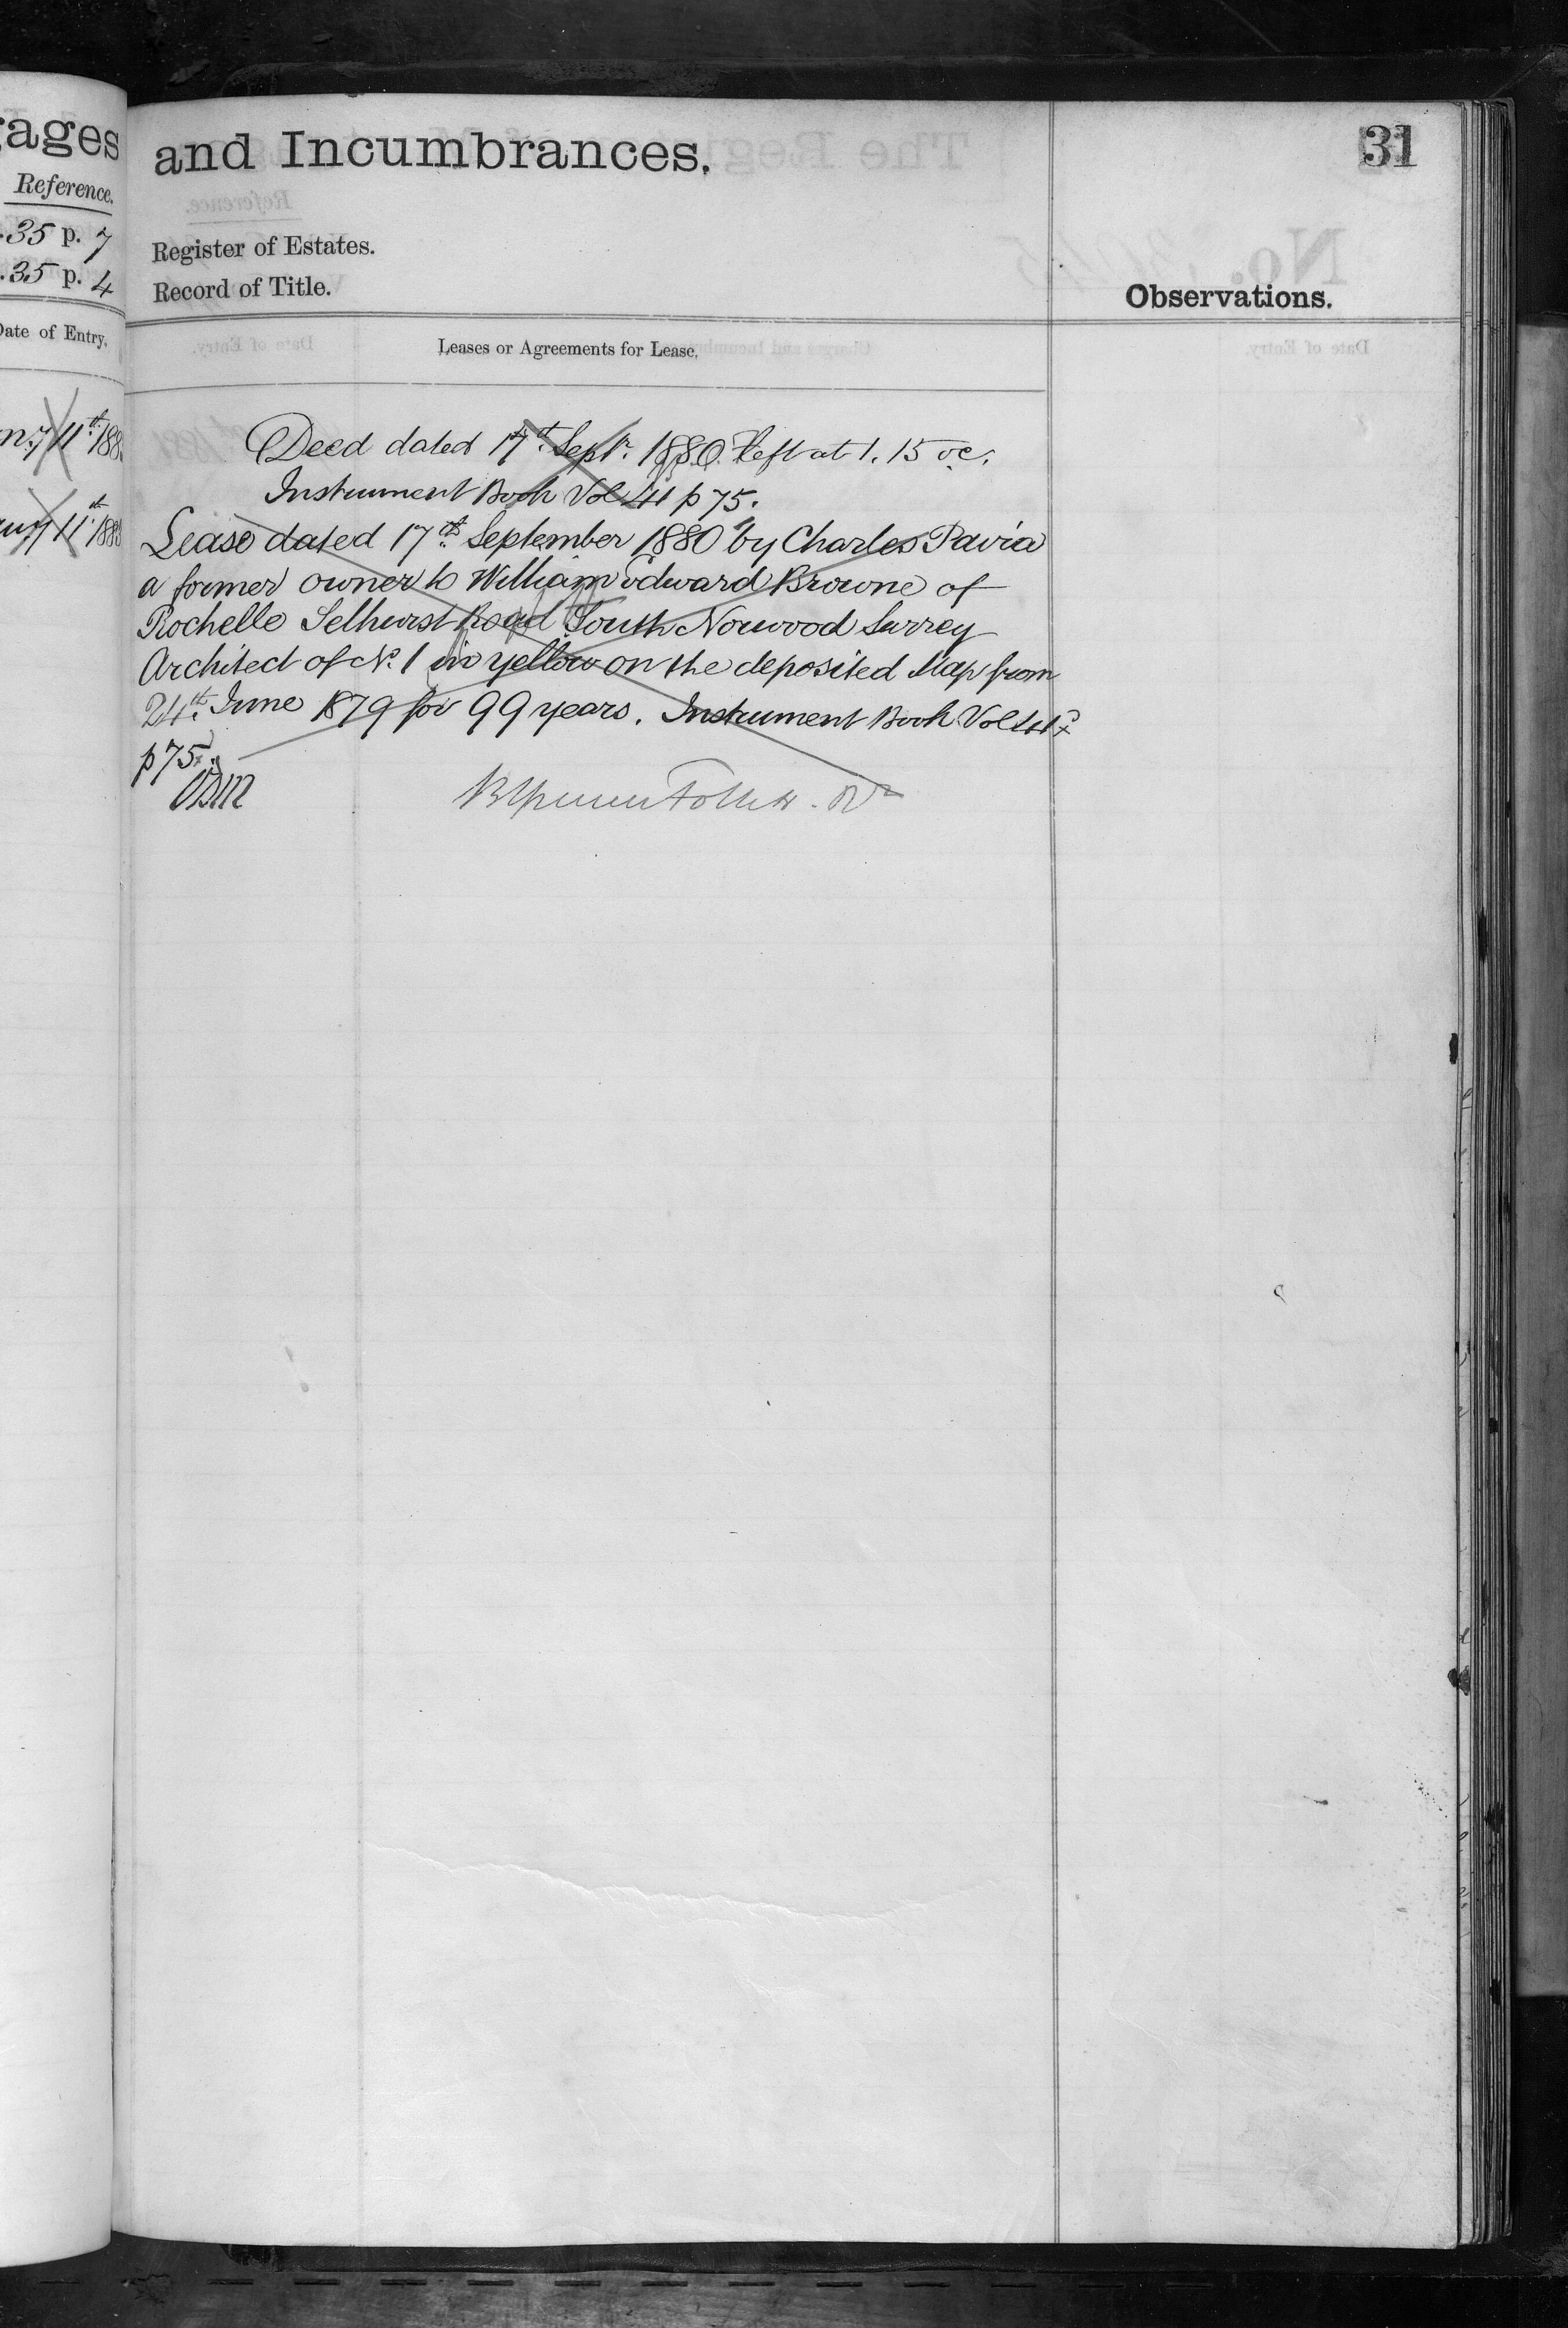 gages
Reference.
35 p. 7
35 p. 4
Date of Entry.
11th 188
11th 188
and Incumbrances.
31
Register of Estates.
Record of Title.
Observations.
Leases or Agreements for Lease.
Deed dated 17th Sept. 1880. Left at 1.15 oc.
Instrument Book Vol 41 p 75.
Lease dated 17th September 1880 by Charles Pavia
a former owner to William Edward Browne of
Rochelle Selhurst Road South Norwood Surrey
Architect of No. 1 in yellow on the deposited Map from
24th June 1879 for 99 years. Instrument Book Vol 41
p 75.